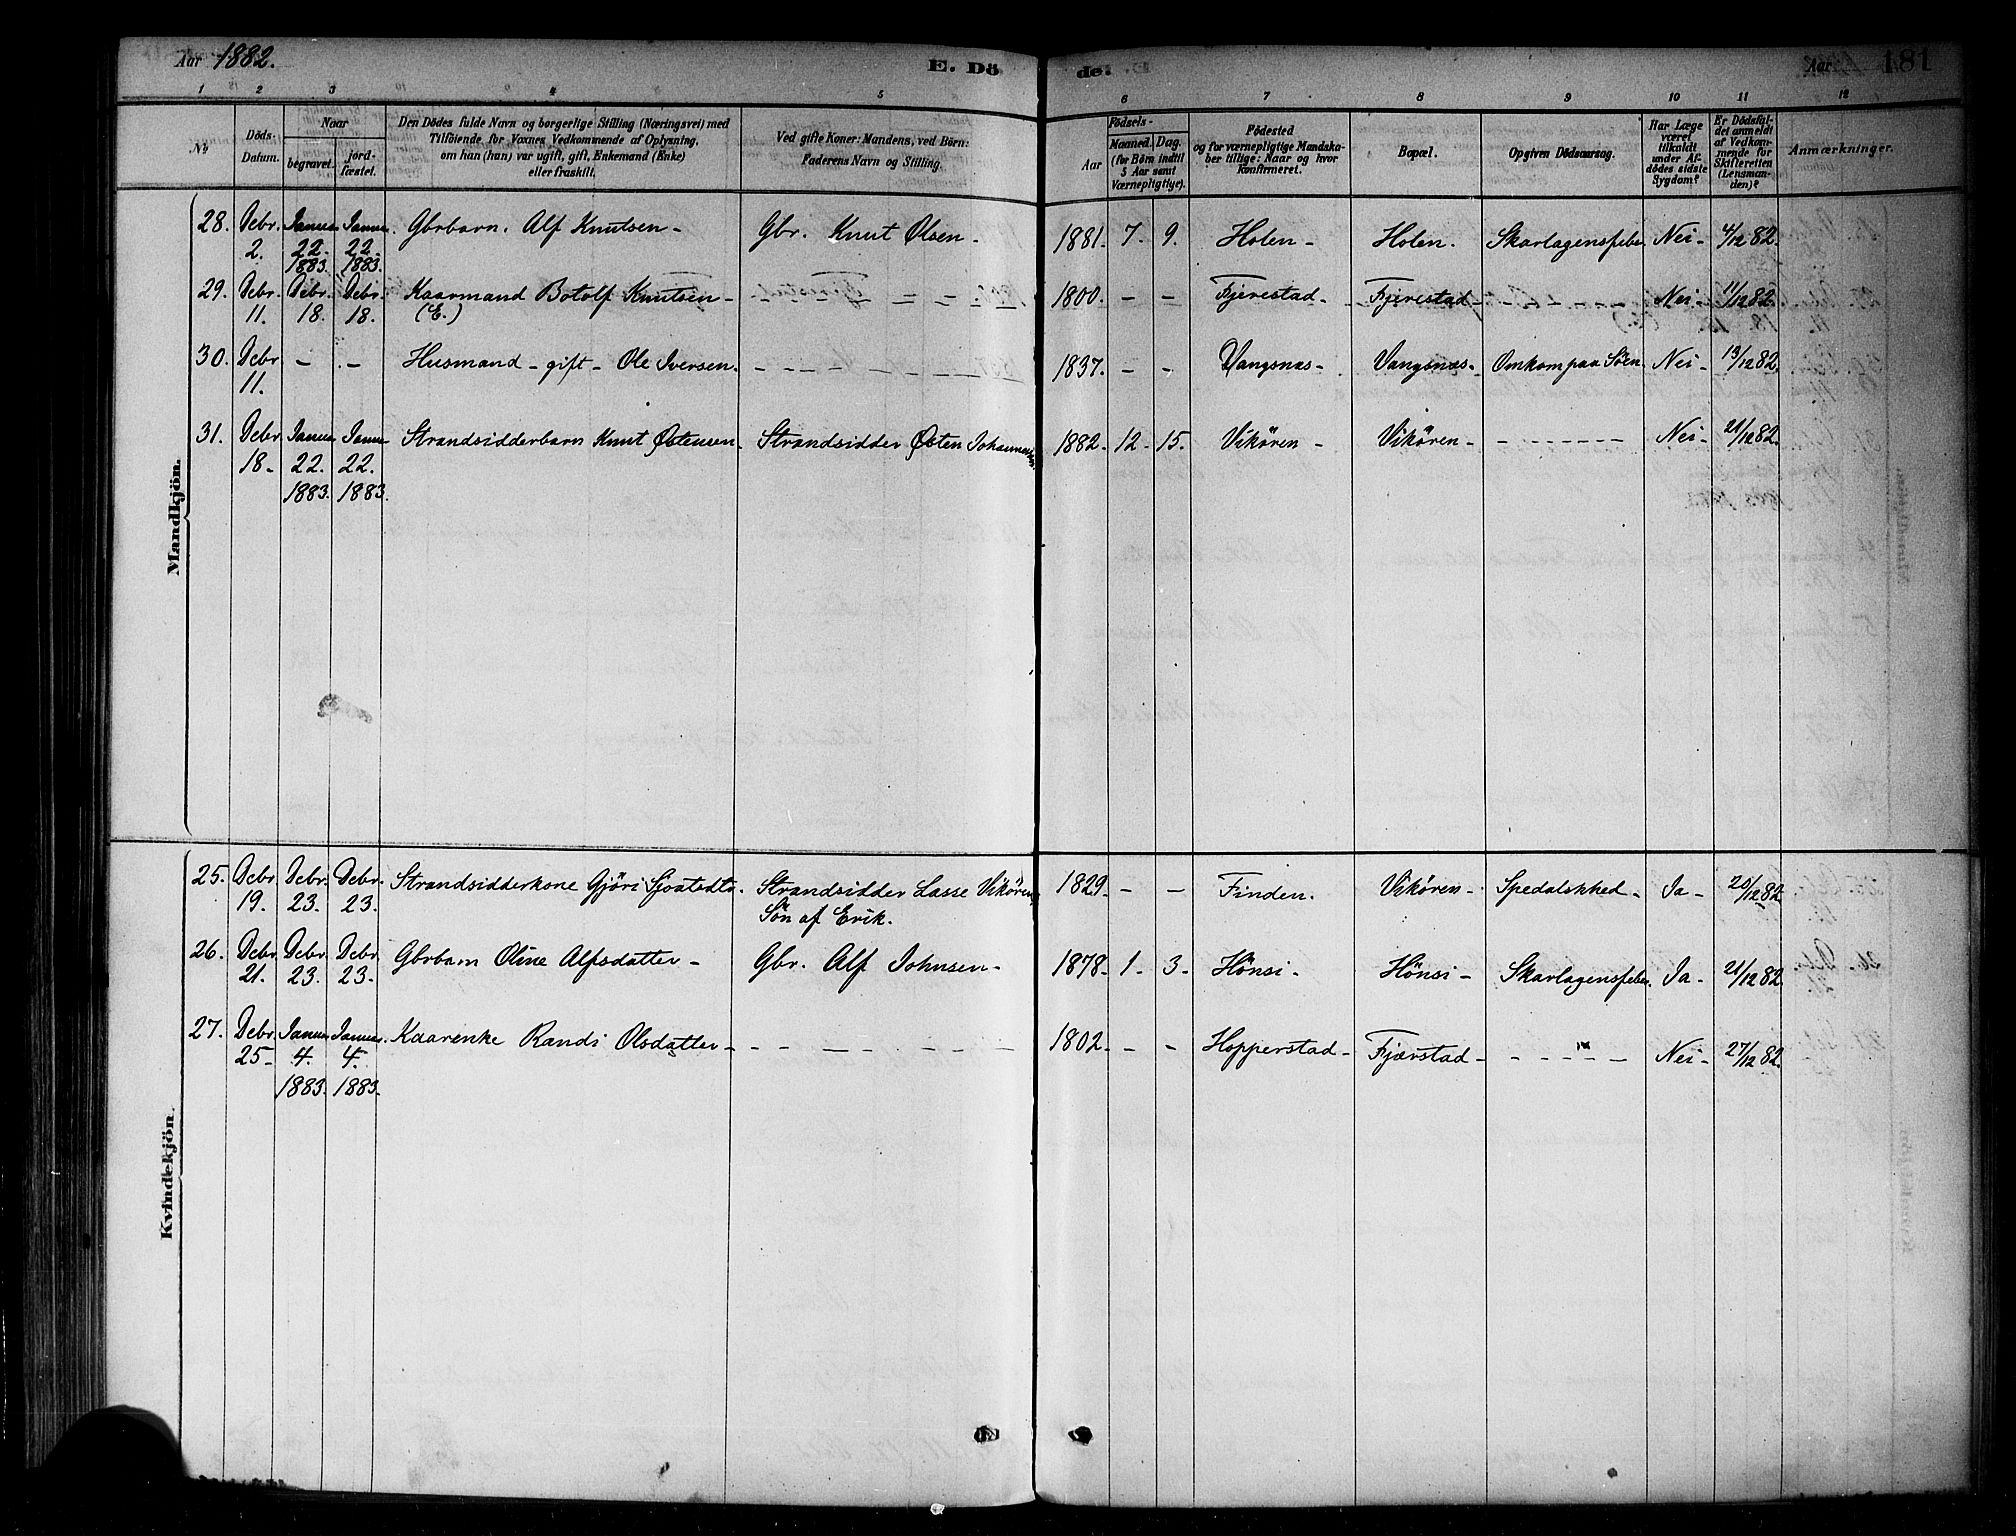 Aar 1882.
E. Dö
de.
Aar
181
1 2 3 4 5 6 7 8 9 10 11 12
No
Döds-
Datum.
Naar
begravet.
jord-
fæstet.
Den Dödes fulde Navn og borgerlige Stilling (Næringsvei) med
Tilföiende for Voxnes Vedkommende af Oplysning,
om han (hun) var ugift, gift, Enkemand (Enke)
eller fraskilt.
Ved gifte Koner: Mandens, ved Börn:
Faderens Navn og Stilling.
Födsels-
Aar
Maaned. Dag.
(for Börn indtil
5 Aar samt
Værnepligtige).
Födested
og for værnepligtige Mandska-
ber tillige: Naar og hvor
konfirmeret.
Bopæl.
Opgiven Dödsaarsag.
Har Læge
været
tilkaldt
under Af-
dödes sidste
Sygdom?
Er Dödsfal-
det anmeldt
af Vedkom-
mende for
Skifteretten
(Lensman-
den)?
Anmærkninger.
Mandkjön.
28. Debr. 2. Januar 22. 1883. Januar 22. 1883. Gbrbarn. Alf Knutsen - Gbr. Knut Olsen. 1881. 7. 9. Holen - Holen. Skarlagensfeber Nei - 4/12 82.
29. Debr. 11. Debr. 18. Debr. 18. Kaarmand Botolf Knutsen - (E.) - - - 1800. - - Fjerestad - Fjerestad - - - - Nei - 11/12 82.
30. Debr 11. - - Husmand - gift - Ole Iversen. - - - 1837. - - Vangsnæs - Vangsnæs - Omkom paa Söen Nei - 13/12 82.
31. Debr 18. Januar 22. 1883. Januar 22. 1883. Strandsidderbarn Knut Östensen. Strandsidder Östen Johannessen 1882. 12. 15. Vikören - Vikören - - - - Nei - 21/12 82.
Kvindekjön.
25. Debr. 19. Debr. 23. Debr. 23. Strandsidderkone Gjöri Sjoatsdtr. Strandsidder Lasse Vikören Sön af Erik. 1829. - - Finden. Vikören - Spedalskhed - Ja - 20/12 82.
26. Debr. 21. Debr. 23. Debr. 23. Gbrbarn Oline Alfsdatter - Gbr. Alf Johnsen - 1878. 1. 3. Hönsi. Hönsi - Skarlagensfeber. Ja - 21/12 82.
27. Debr 25. Januar 4. 1883. Januar 4. 1883. Kaarenke Randi Olsdatter - - - - 1802. - - Hopperstad - Fjærstad - - - - Nei - 27/12 82.